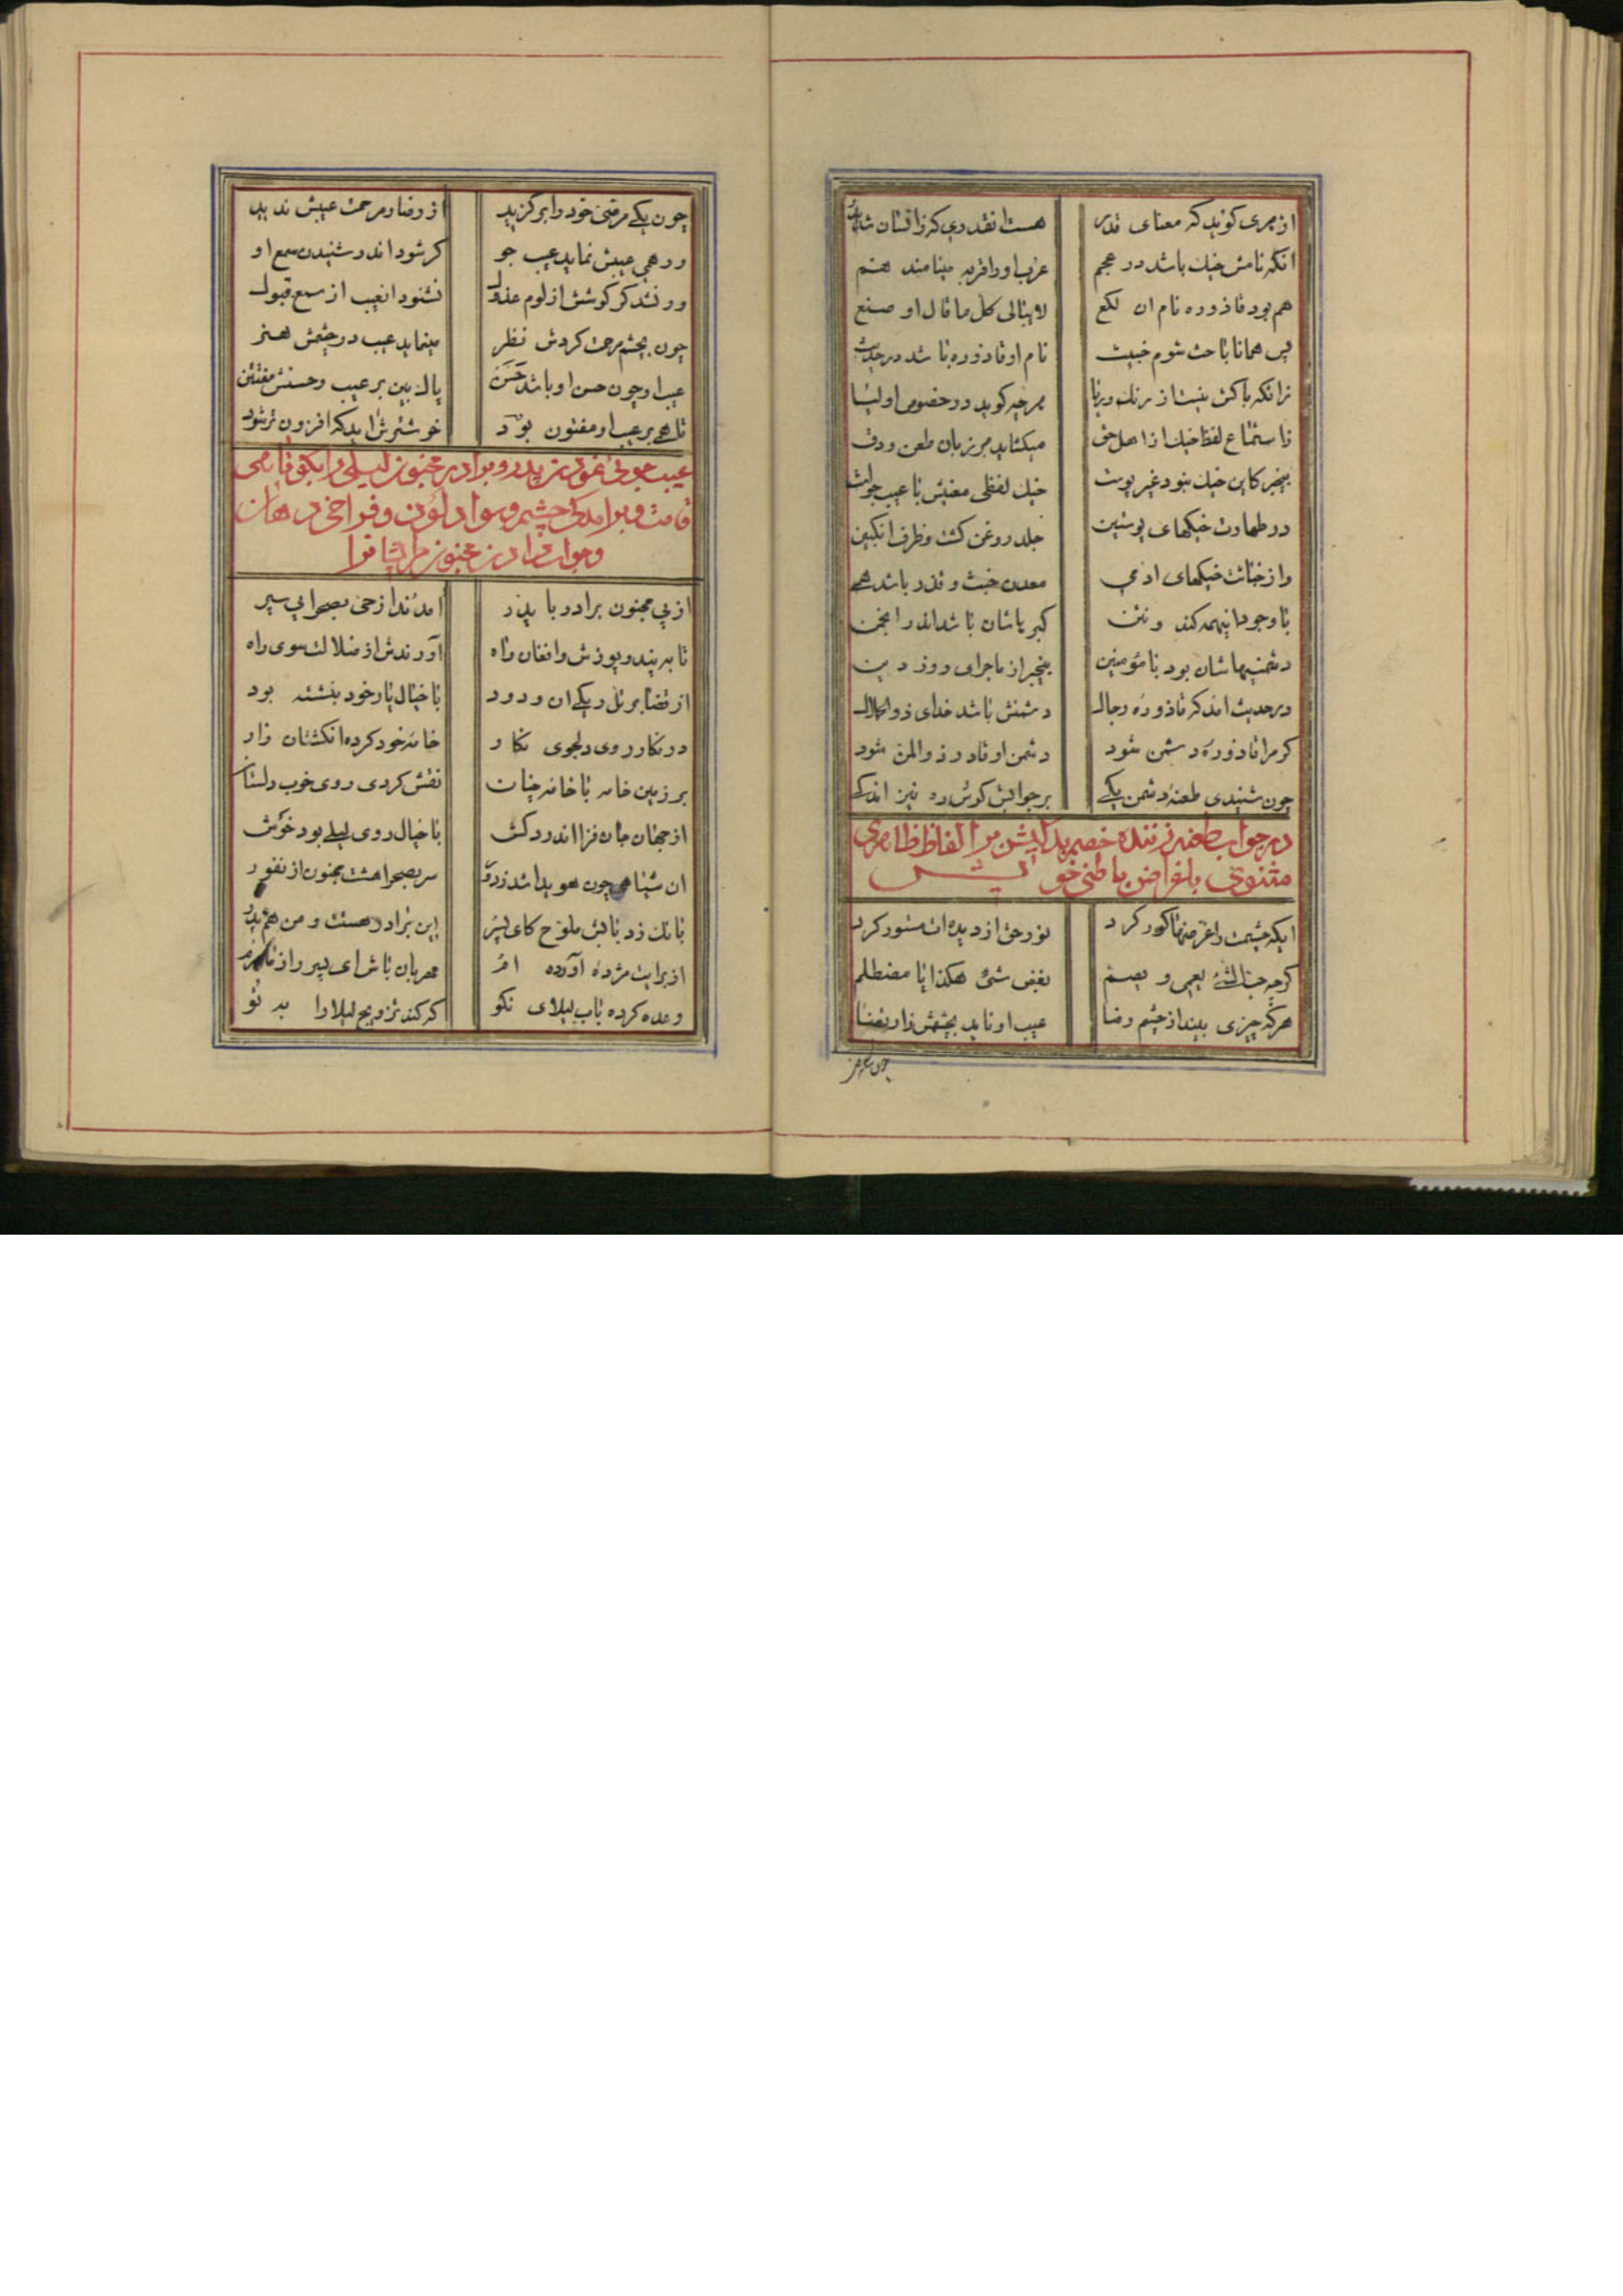 از هری گوید که معنای قذر هست انقدری که زانسان شد
انکه نامش خیك باشد در عجم عرب او را قربه مینامند هم
هم بود قاذوره نام ان لکع لایبالی کل ما قال او صنع
پس همانا باحث شوم خبیث نام او قاذوره باشد در حدیث
زانکه باکش نیست از رنك و ریا هرچه گوید در خصوص اولیا
زاستماع لفظ خیك از اهل حق میکشاید هر زبان طعن و دق
بیخبر کاین خیك نبود غیر پوست خیك لفظی معنیش با عیب جوست
در طهارت خیکهای پوستین جلد روغن کشت و ظرف انکبین
واز خباثت خیکهای ادمی معدن خبث و قذر باشد همی
با وجود اینهمه کند و نتن کبریاشان باشد اندر انجمن
دشمنیهاشان بود با مؤمنین بیخبر از ماجرای روز دین
در حدیث امد که قاذوره رجال دشمنش باشد خدای ذو الجلال
کر مرا قاذوره دشمن شود دشمن او قادر ذو المن شود
چون شنیدی طعنهٔ دشمن یکی بر جوابش کوش ده نیز اندکی
در جواب طعنه زننده خصم بداندیش مر الفاظ ظاهری
مثنوی باغراض باطنی خویش
ایکه چشمت را غرضها کور کرد نور حق از دیده‌ات مستور کرد
کرچه حب الشئ یعمی و یصم بغض شئ هکذا یا مضطلم
هرکه چیزی بیند از چشم رضا عیب او ناید بچشمش زاربغضا
چون یکی
چون یکی مرضی خود را برکزید از رضا و مرحمت عیبش ندید
ور همی عیبش نماید عیب جو کر شود اندر شنیدن سمع او
ور نشد کر کوشش از لوم عذول نشنود انعیب از سمع قبول
چون بچشم مرحمت کردش نظر مینماید عیب در چشمش هنر
عیب او چون حسن او باشد حسن پاك بین بر عیب و حسنش مفتتن
تا همی بر عیب او مفتون بود خوشترش اید که افزون‌تر شود
عیب جوئی نمودن پدر و برادر مجنون لیلی را بکوتاهی
قامت و برامدکی چشم و سواد لون و فراخی دهان
و جواب دادن مجنون مر ایشانرا
از پی مجنون برادر با پدر امدند از حی بصحرا پی سپر
تا به پند و پوزش و افغان و اه آورندش از ضلالت سوی راه
از قضا بر تل ریکی ان ودود با خیال یار خود بنشسته بود
در نکار روی دلجوی نکار خامهٔ خود کرده انکشتان زار
بر زمین خامه با خامه چنان نقش کردی روی خوب دلستان
از جهان جان فزا اندر دکش با خیال روی لیلی بود خوش
ان سیاهی چون هویدا شد ز دور سر بصحرا هشت مجنون از نفور
بانك زد بابش ملوح کای پسر این برادر هست و من هم پدر
از برایت مژده آورده ام مهربان باش ای پسر
وعده کرده باب لیلای نکو که کند تزویج لیلا را به تو